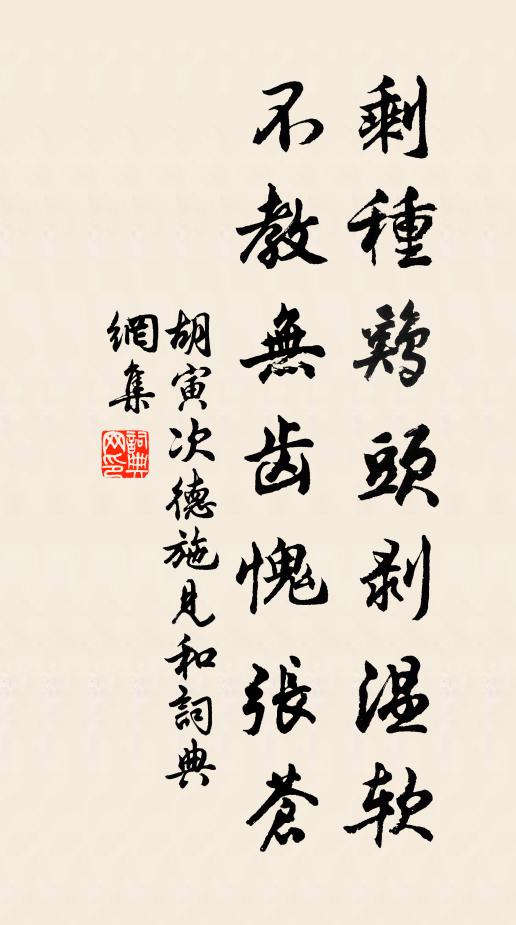 剩種鷄頭剥温软
不教無齿愧張蒼
胡寅次德施見和詞典
網集
詞典
网印